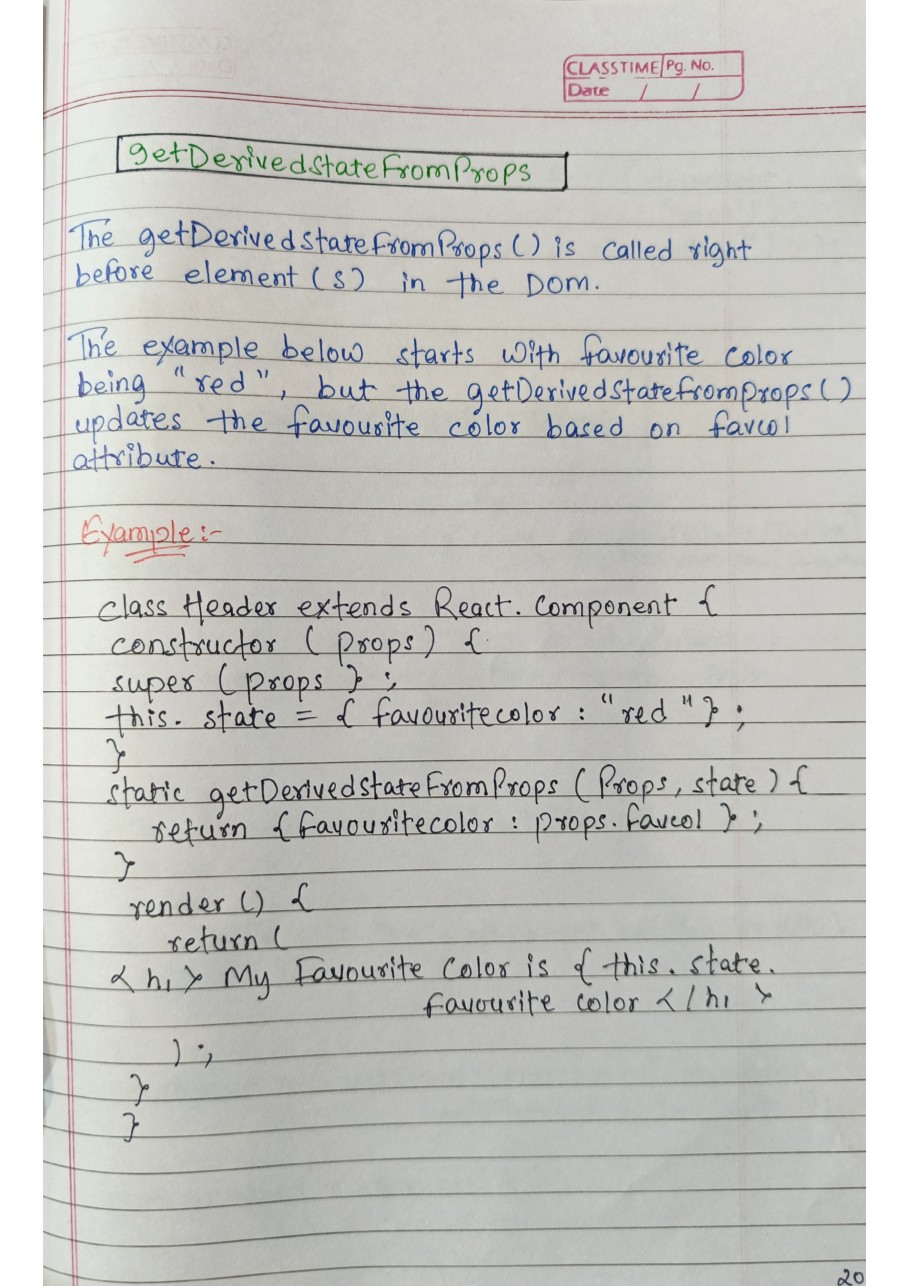 CLASSTIME Pg. No.
Date / /
getDerivedStateFromProps
The getDerivedStateFromProps() is called right
before element(s) in the DOM.
The example below starts with favourite color
being "red", but the getDerivedStatefromprops()
updates the favourite color based on favcol
attribute.
Example :-
class Header extends React. Component {
constructor ( props) {
super ( props } ;
this. state = { favouritecolor : "red "} ;
}
static getDerivedStateFromProps ( Props, state ) {
return {favouritecolor : props.favcol } ;
}
render () {
return (
< h1 > My Favourite Color is { this. state.
favourite color < / h1 >
) ;
}
}
20